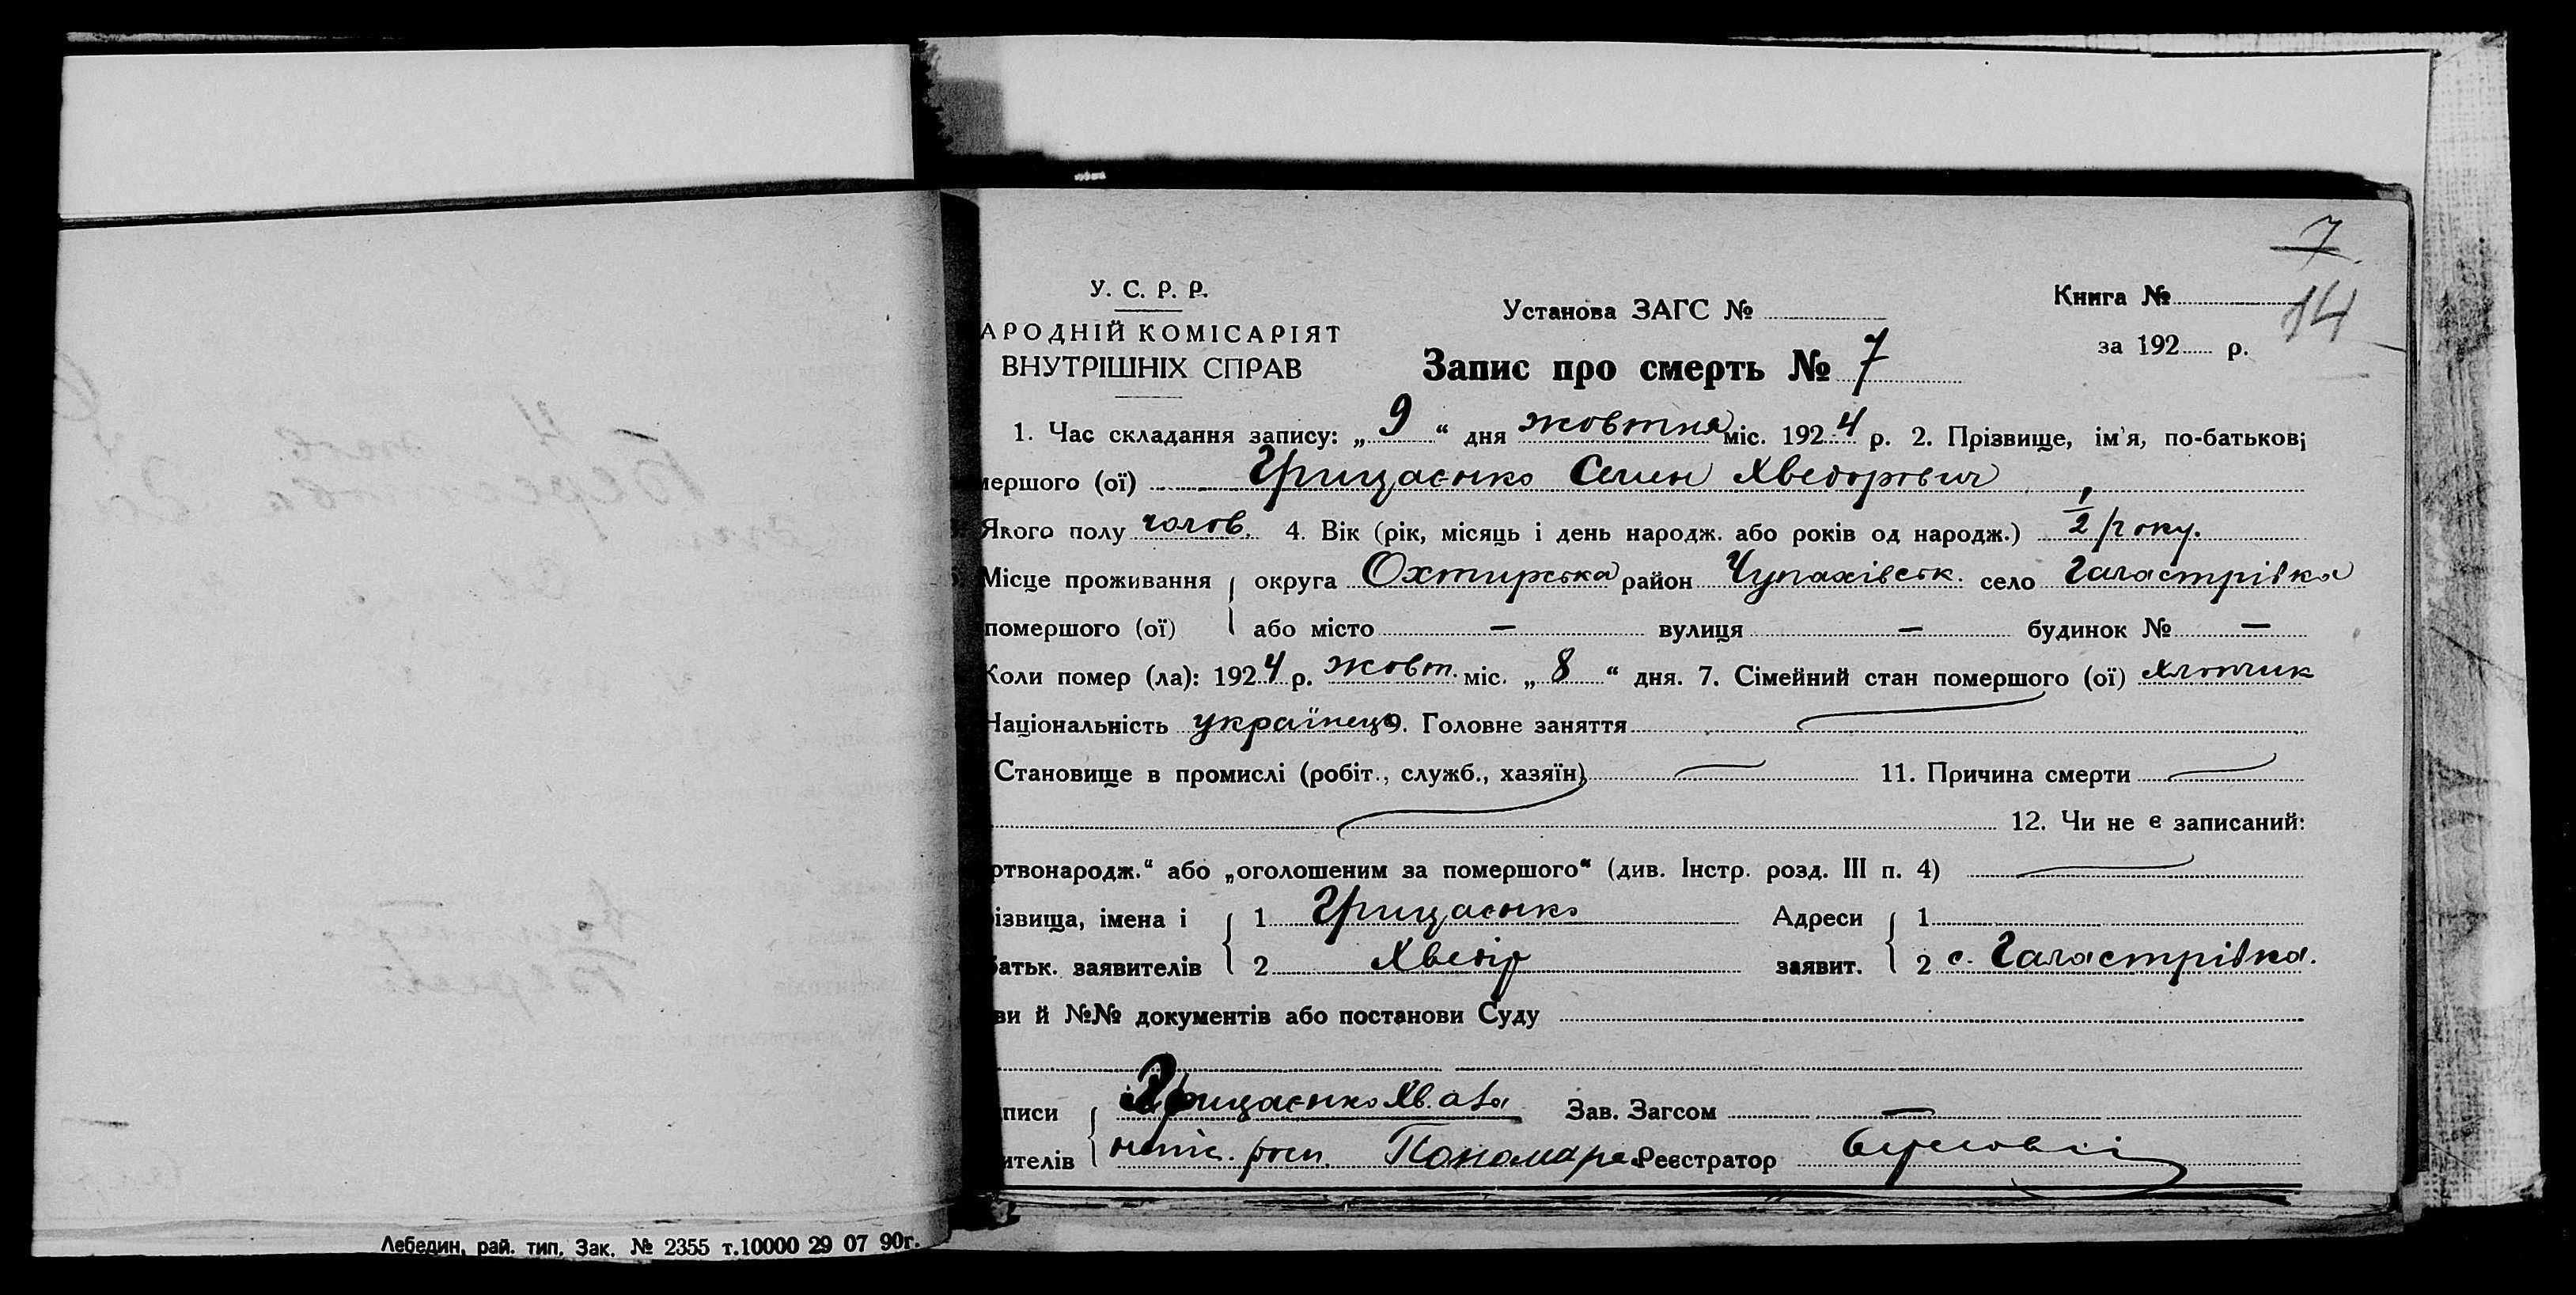 7
У. С. Р. Р.
Установа ЗАГС №
Книга №
14
АРОДНІЙ КОМІСАРІЯТ
за 192 р.
ВНУТРІШНІХ СПРАВ
Запис про смерть № 7
1. Час складання запису: „ 9 “ дня жовтня міс. 192 4 р. 2. Прізвище, ім'я, по-батькові
мершого (ої) Грицаєнко Семен Хведорович
Якого полу чолов. 4. Вік (рік, місяць і день народж. або років од народж.) 1/2 року.
Місце проживання округа Охтирська район Чупахівськ. село Галастрівка
помершого (ої) або місто — вулиця — будинок № —
Коли помер (ла): 192 4 р. жовт. міс. „ 8 “ дня. 7. Сімейний стан помершого (ої) хлопчик
Національність українець 9. Головне заняття
Становище в промислі (робіт., служб., хазяїн) 11. Причина смерти
12. Чи не є записаний:
ртвонародж.“ або „оголошеним за помершого“ (див. Інстр. розд. III п. 4)
ізвища, імена і 1 Грицаєнко Адреси 1
батьк. заявителів 2 Хведір заявит. 2 с. Галастрівка.
ви й №№ документів або постанови Суду
писи Грицаєнко Хв. а за Зав. Загсом —
ителів непис. росп. Пономаре Реєстратор
Лебедин, рай. тип. Зак. № 2355 т.10000 29 07 90г.